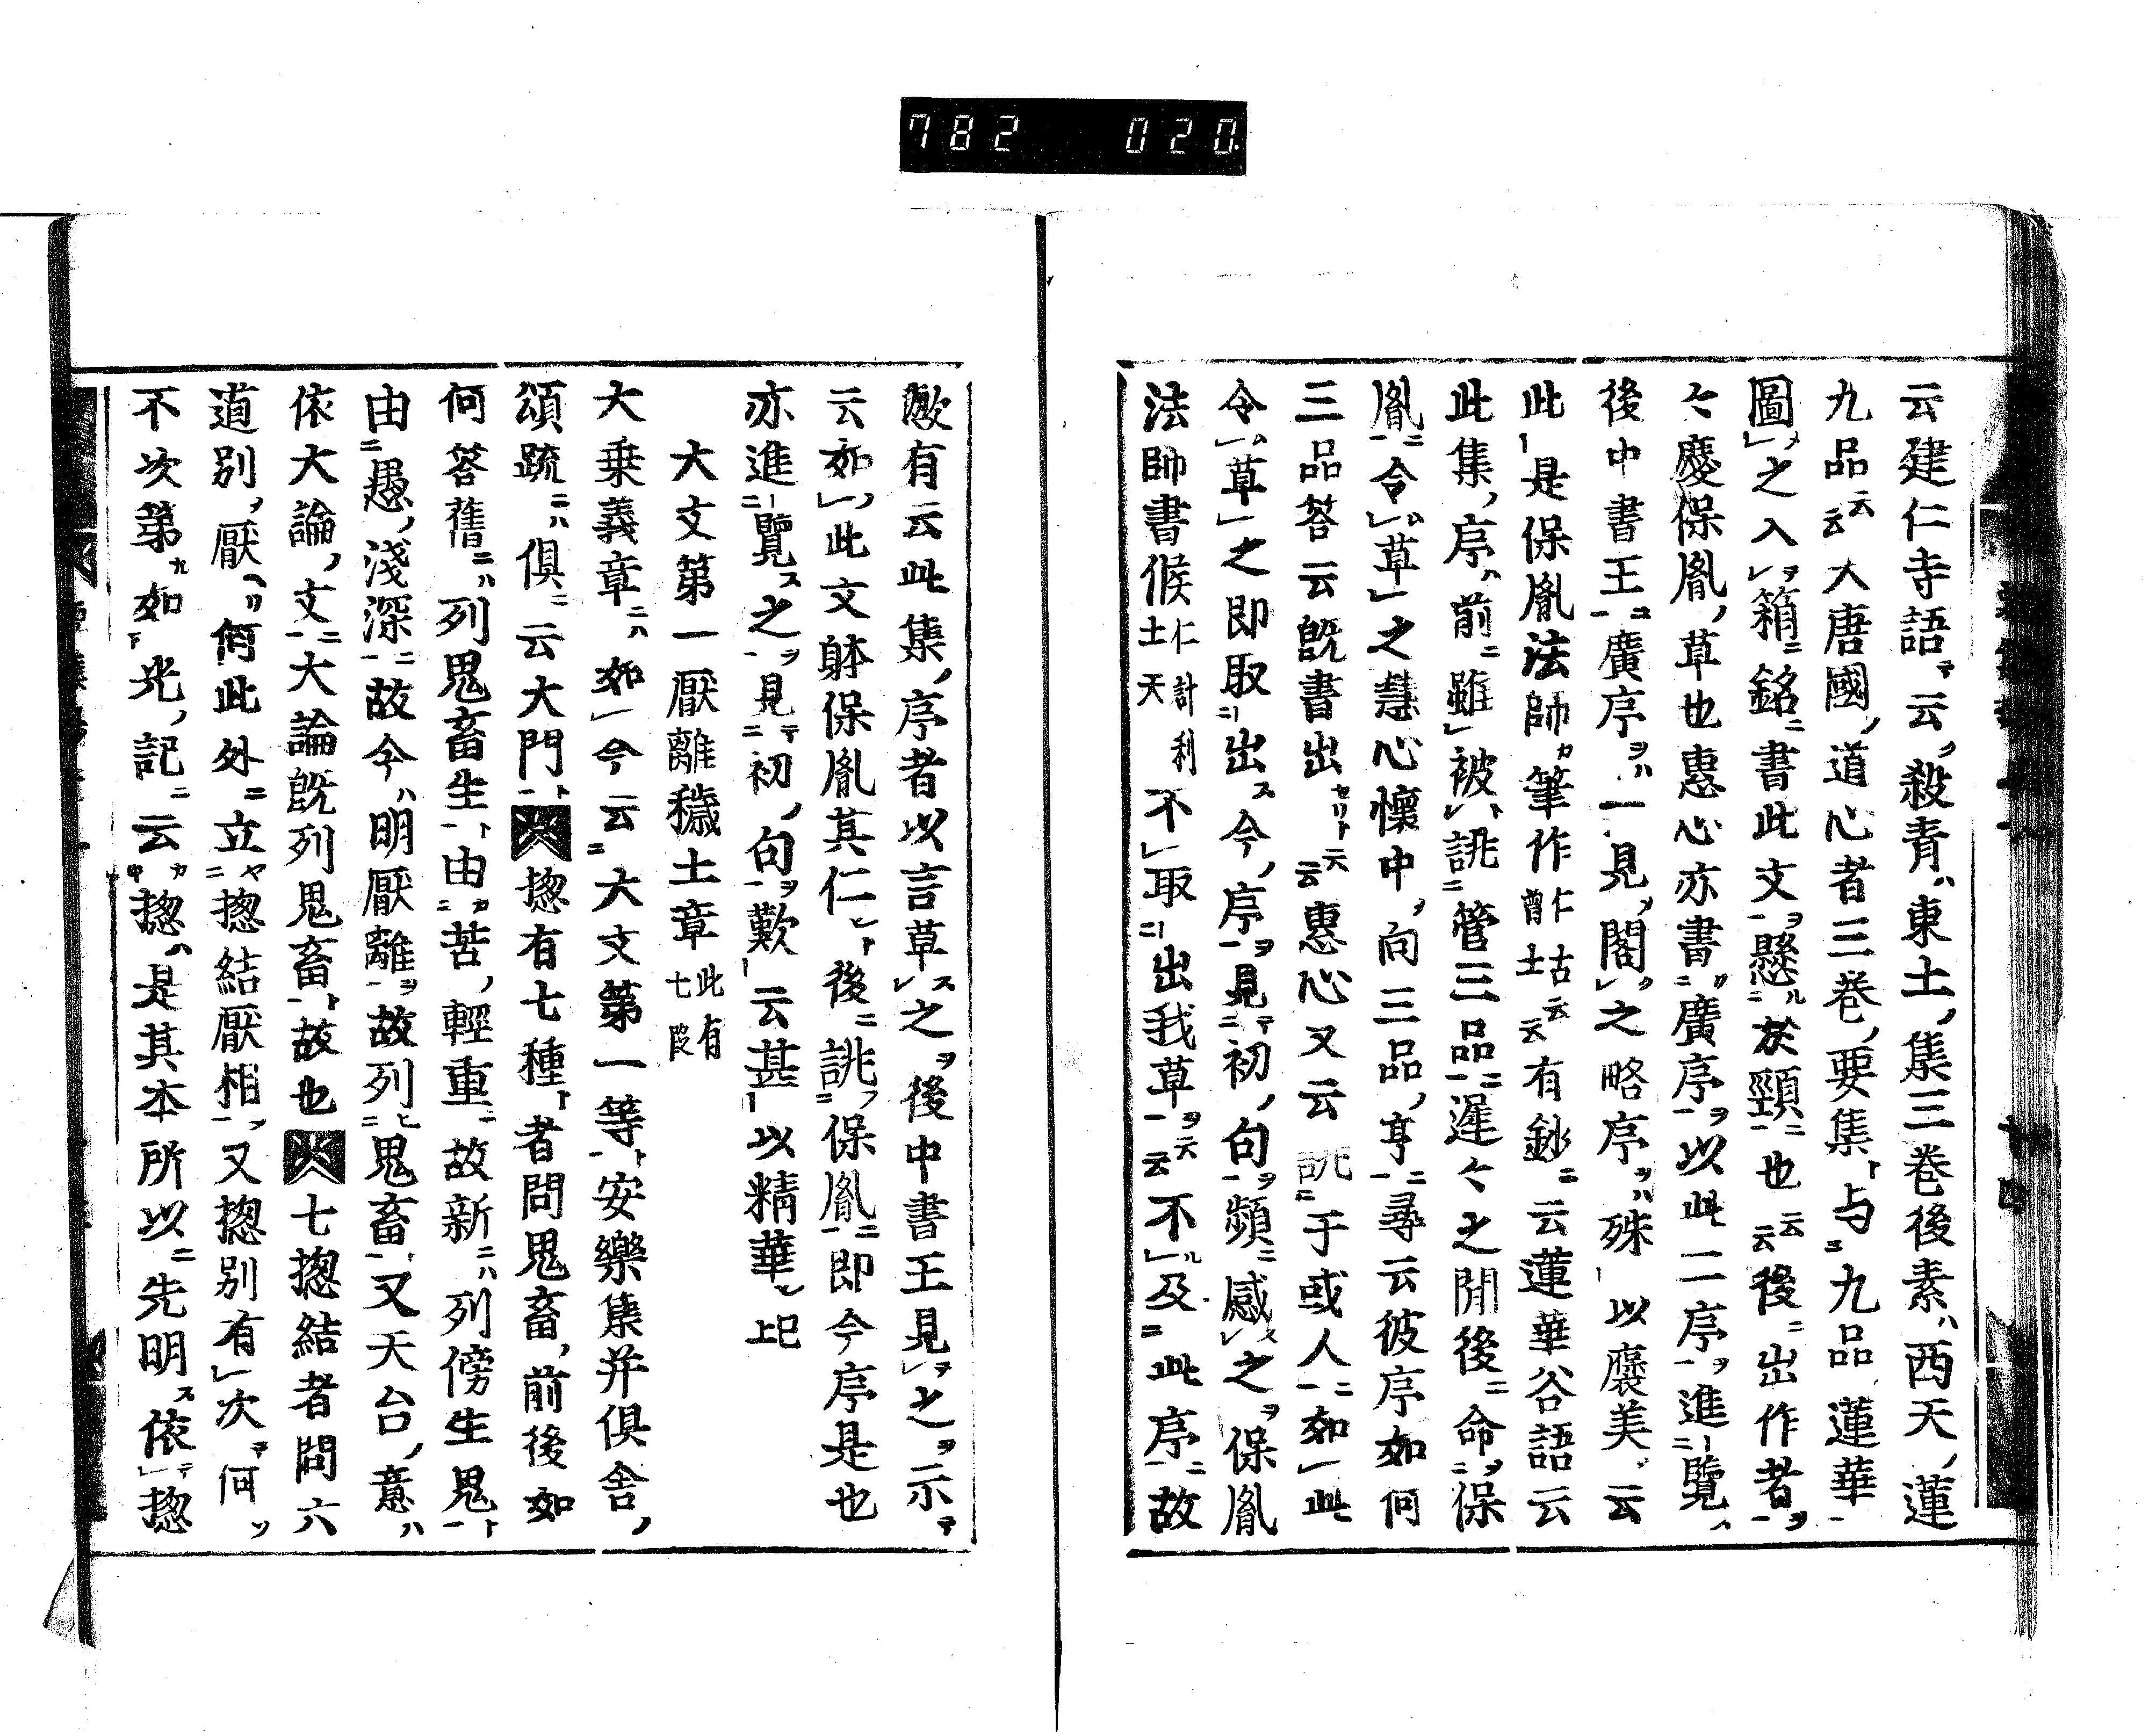 782 020
云建仁寺語云殺青東土集三巻後素西天蓮
九品云云大唐國道心者三巻要集与九品蓮華
圖之入箱銘書此文懸於頸也云云後出作者
々慶保胤草也惠心亦書廣序以此二序進覽
後中書王廣序一見閣之略序殊以襃美云
此是保胤法師筆作仁古云曽士云有鈔云蓮華谷語云
此集序前雖被誂菅三品遲々之間後命保
胤令草之慧心懷中向三品亭尋云彼序如何
三品答云既書出云云惠心又云誂于或人如此
令草之即取出今序見初句頻感之保胤
法師書候仁計利土天不取出我草云云不及此序故
歟有云此集序者以言草之後中書王見之示
云如此文躰保胤其仁後誂保胤即今序是也
亦進覽之見初句歎云甚以精華已上
大文第一厭離穢土章此有七段
大乗義章如今云大文第一等安樂集并倶舎
頌疏倶云大門文揔有七種者問鬼畜前後如
何答舊列鬼畜生由苦輕重故新列傍生鬼
由愚淺深故今明厭離故列鬼畜又天台意
依大論文大論既列鬼畜故也文七揔結者問六
道別厭何此外立揔結厭相又揔別有次何
不次第如光記云揔是其本所以先明依揔